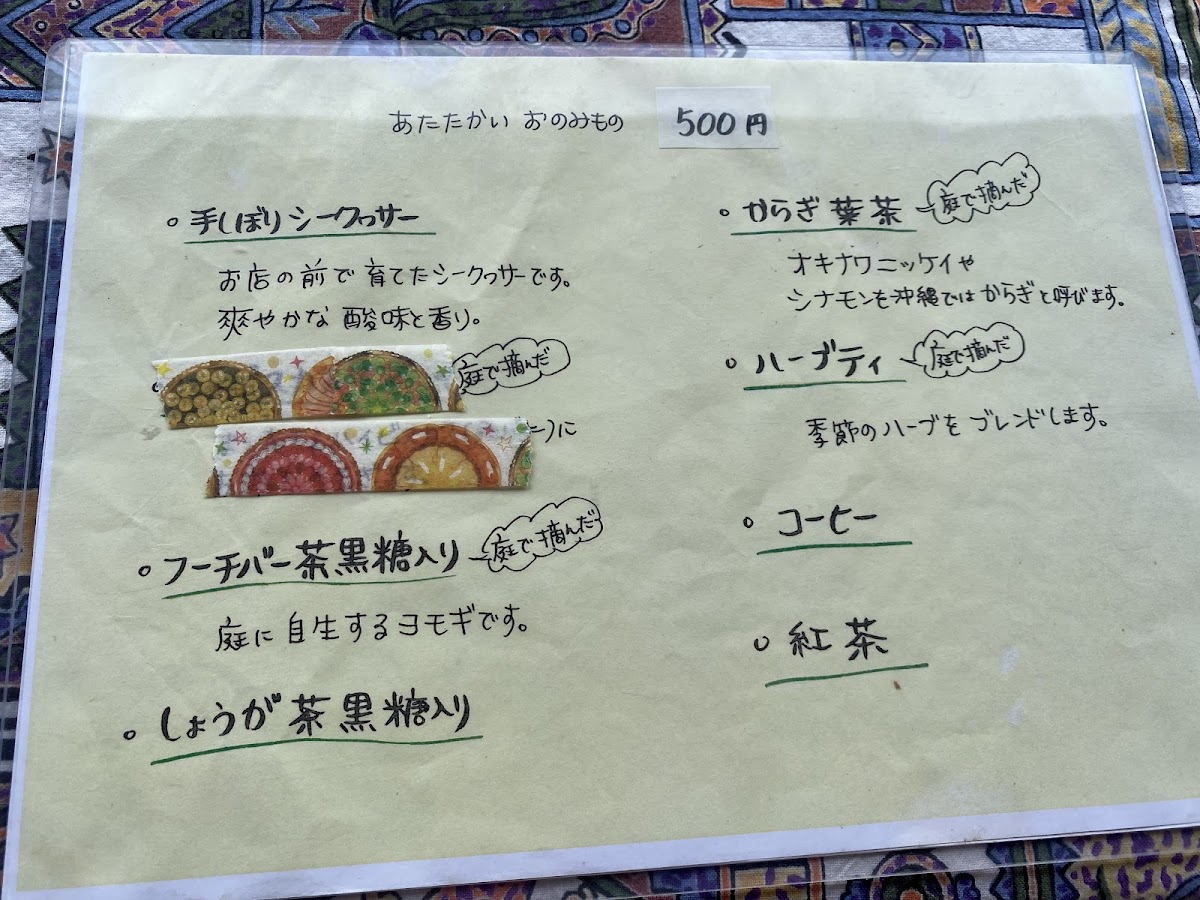 あたたかい おのみもの 500円
○ 手しぼりシークヮサー
お店の前で育てたシークヮサーです。
爽やかな酸味と香り。
庭で摘んだ
うに
○ フーチバー茶黒糖入り 庭で摘んだ
庭に自生するヨモギです。
○ しょうが茶黒糖入り
○ からぎ葉茶 庭で摘んだ
オキナワニッケイや
シナモンを沖縄ではからぎと呼びます。
○ ハーブティ 庭で摘んだ
季節のハーブをブレンドします。
○ コーヒー
○ 紅茶